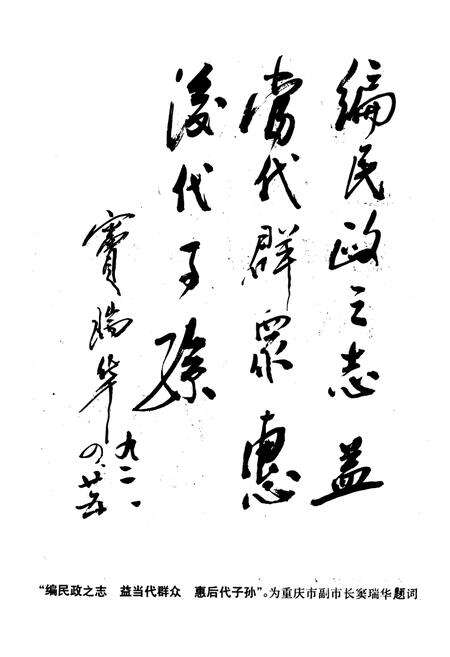 编民政之志 益
當代群眾 惠
後代子孫
竇瑞华
九二、一
“编民政之志 益当代群众 惠后代子孙”。为重庆市副市长窦瑞华题词